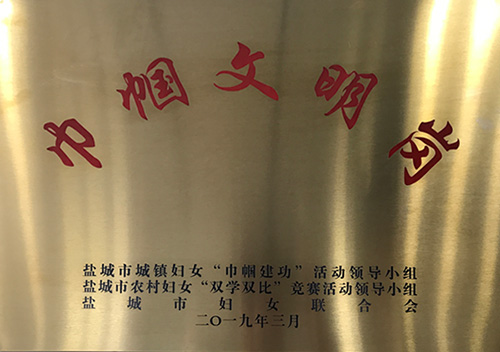 巾帼文明岗
盐城市城镇妇女“巾帼建功”活动领导小组
盐城市农村妇女“双学双比”竞赛活动领导小组
盐城市妇女联合会
二〇一九年三月